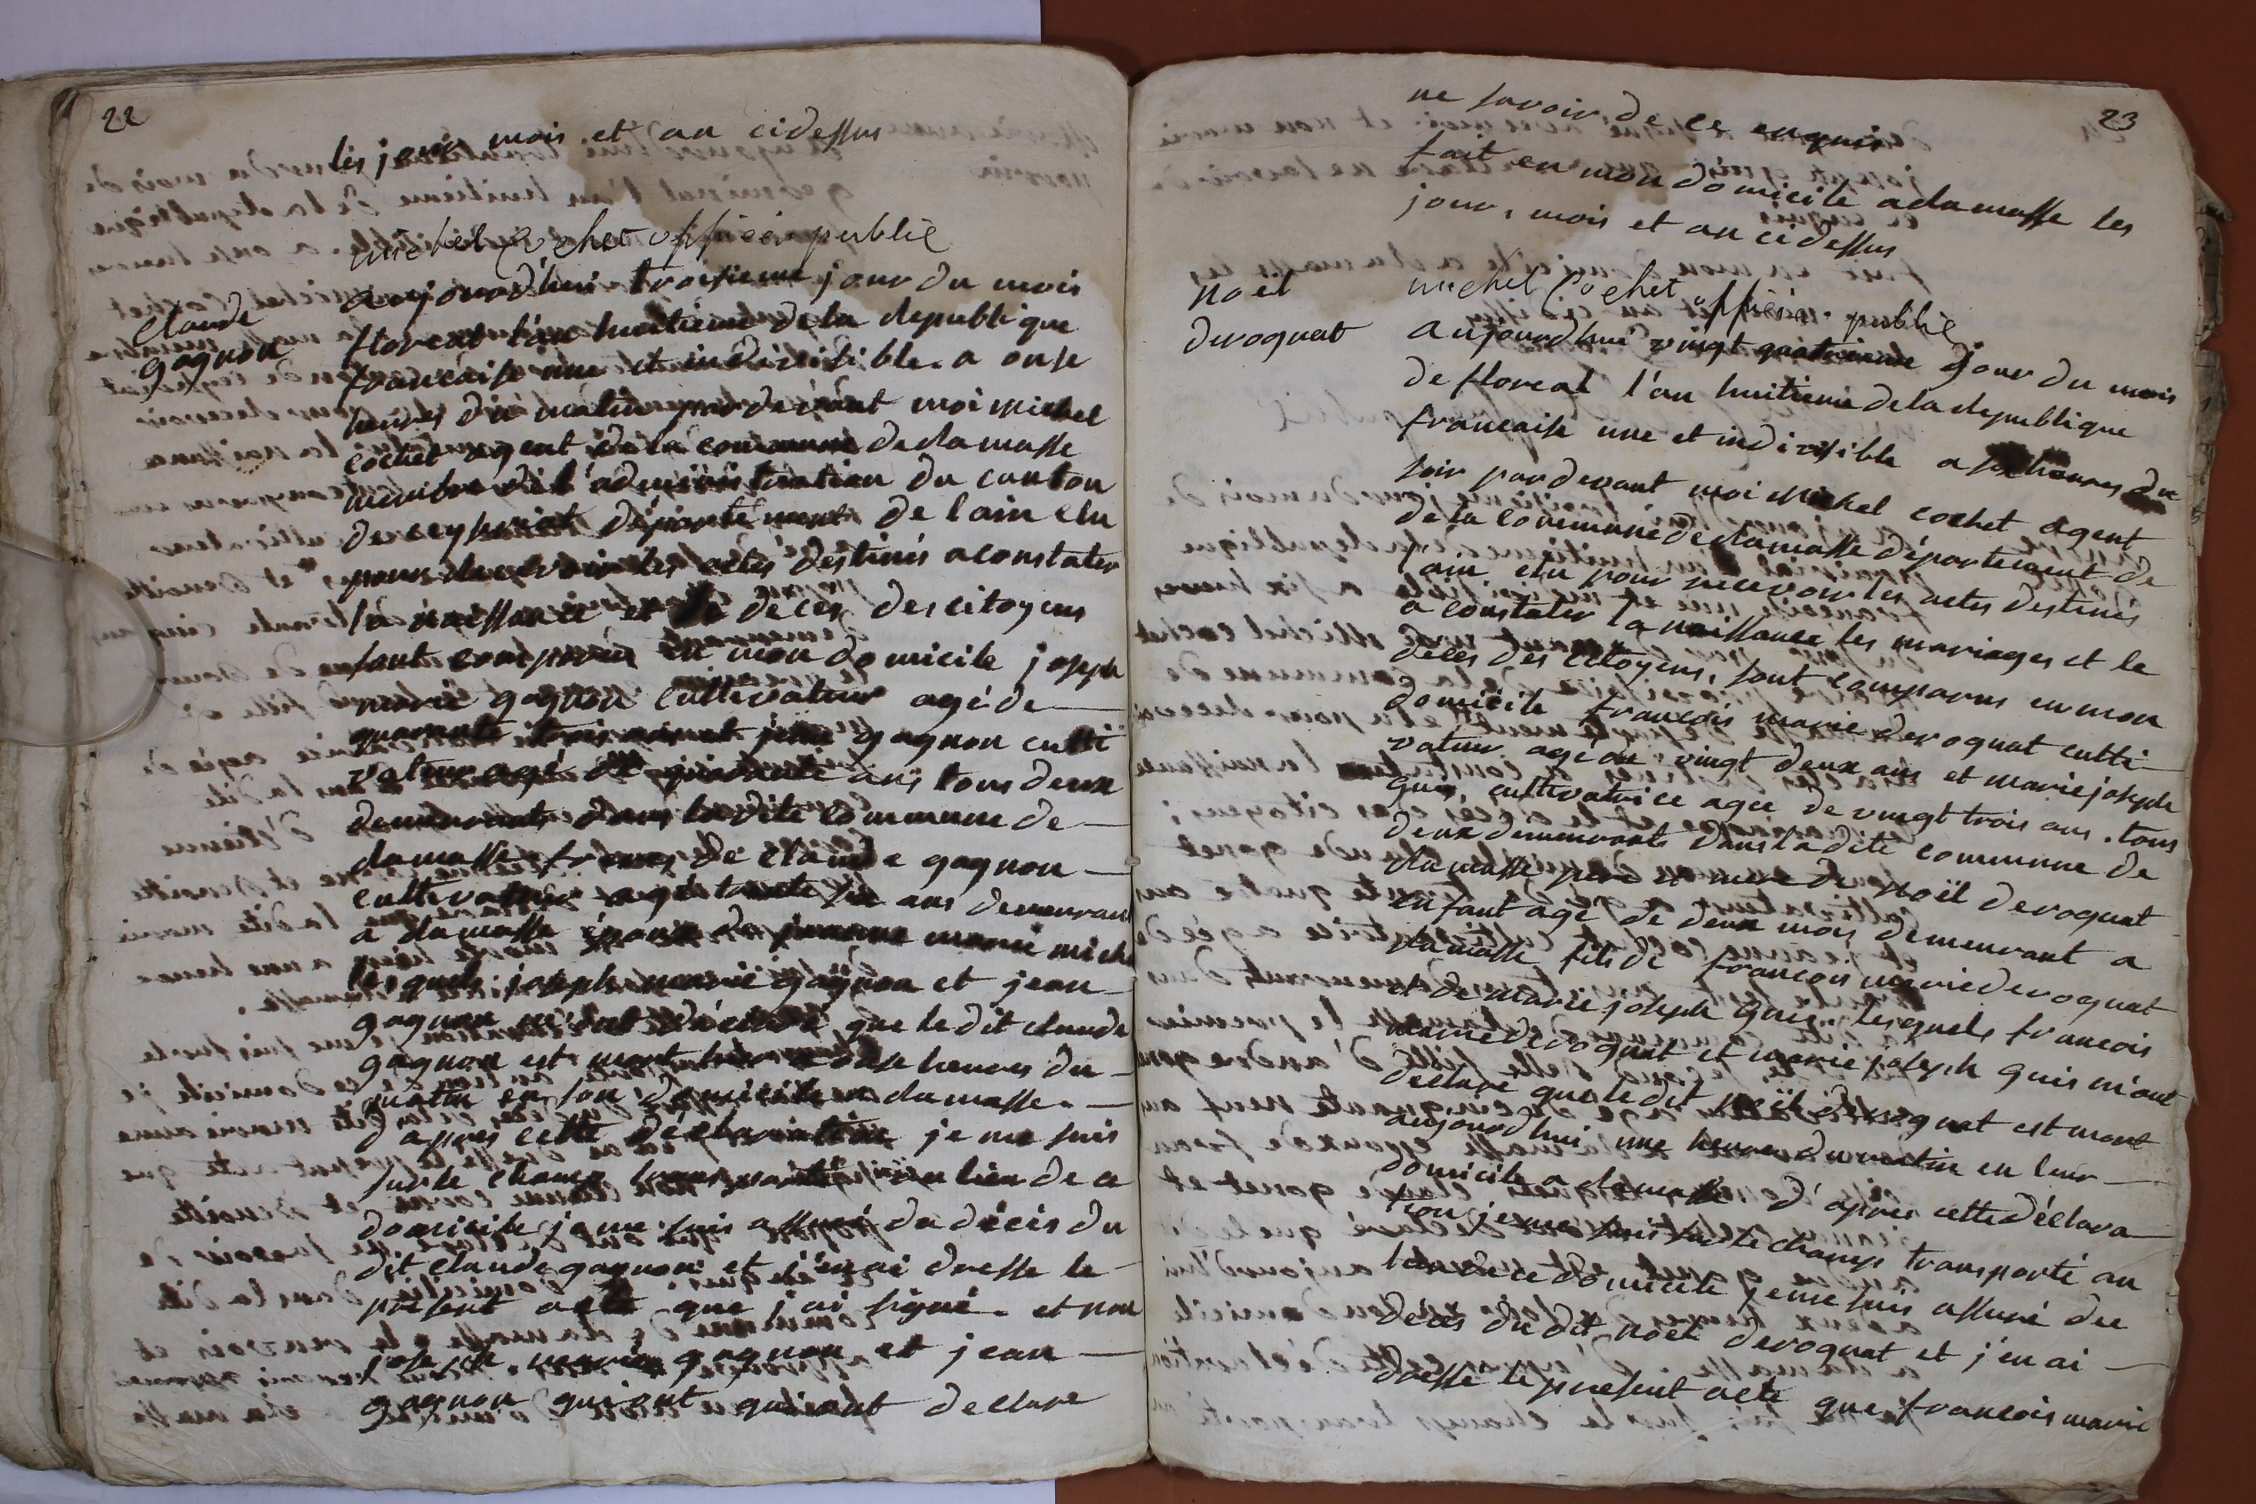 22
les jour mois et an cidessus
michel Cochet officier public
claude
gagnon
aujourd'hui troisieme jour du mois
floreal l'an huitieme de la republique
francaise une et indivisible. a onse
heures du matin par devant moi michel
cochet agent de la commune declamasse
membre de l'administration du canton
de ceyseriat département de l'ain elu
pour recevoir les actes destinés a constater
la naissance et le deces des citoyens
sont comparus en mon domicile joseph
marie gagnon cultivateur agé de
quarante trois ans et jean gagnon culti
vateur agé de quarante ans tous deux
demeurants dans la dite commune de
damasse freres de claude gagnon
cultivateur agé trente six ans demeurant
a damasse époux de jeanne marie miche
lesquels joseph marie gagnon et jean
gagnon m'ont déclaré que le dit claude
gagnon est mort hier a onse heures du
matin en son domicile a damasse.
d'apres cette déclaration je me suis
sur le champ transporté au lieu de ce
domicile je me suis assuré du décès du
dit claude gagnon et j'en ai dresse le
présent acte que j'ai signé. et non
joseph marie gagnon et jean
gagnon qui ont qui ont declare
23
ne savoir de ce enquis
fait en mon domicile a damasse les
jour, mois et an cidessus
michel Cochet officier public
noel
devoquat
aujourdhui vingt quatrieme jour du mois
de floreal l'an huitieme de la republique
francaise une et indivisible a six heures du
soir par devant moi michel cochet agent
de la commune declamasse département de
l'ain elu pour recevoir les actes destinés
a constater la naissance les mariages et le
deces des citoyens, sont comparus en mon
domicile francois marie devoquat culti
vateur agé de vingt deux ans et marie joseph
guis, cultivatrice agee de vingt trois ans. tous
deux demeurants dans la dite commune de
damasse pere et mere de noël devoquat
enfant agé de deux mois demeurant a
damasse fils de francois marie devoquat
et de marie joseph guis. lesquels francois
marie devoquat et marie joseph guis m'ont
declaré que le dit noël devoquat est mort
aujourdhui une heure du matin en leur
domicile a damasse d'apres cette déclara
tion je me suis sur le champ transporté au
lieu de ce domicile je me suis assuré du
décès du dit noël devoquat et j'en ai
dresse le present acte que francois marie